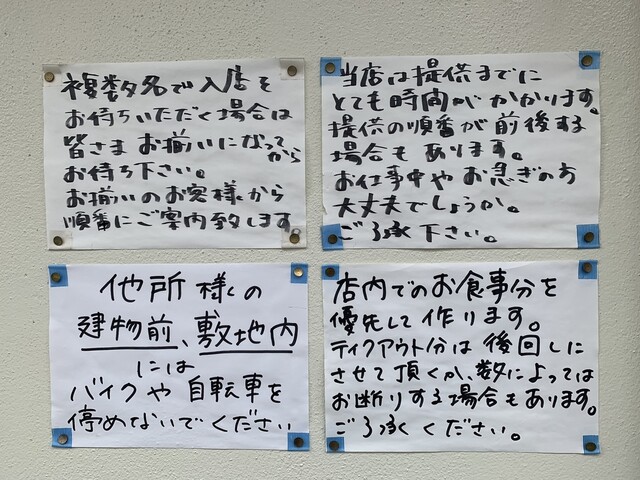 複数名で入店を
お待ちいただく場合は
皆さまお揃いになってから
お待ち下さい。
お揃いのお客様から
順番にご案内致します
当店は提供までに
とても時間がかかります。
提供の順番が前後する
場合もあります。
お仕事中やお急ぎの方
大丈夫でしょうか。
ご了承下さい。
他所様の
建物前、敷地内
には
バイクや自転車を
停めないでください
店内でのお食事分を
優先して作ります。
テイクアウト分は後回しに
させて頂くか、数によっては
お断りする場合もあります。
ご了承ください。